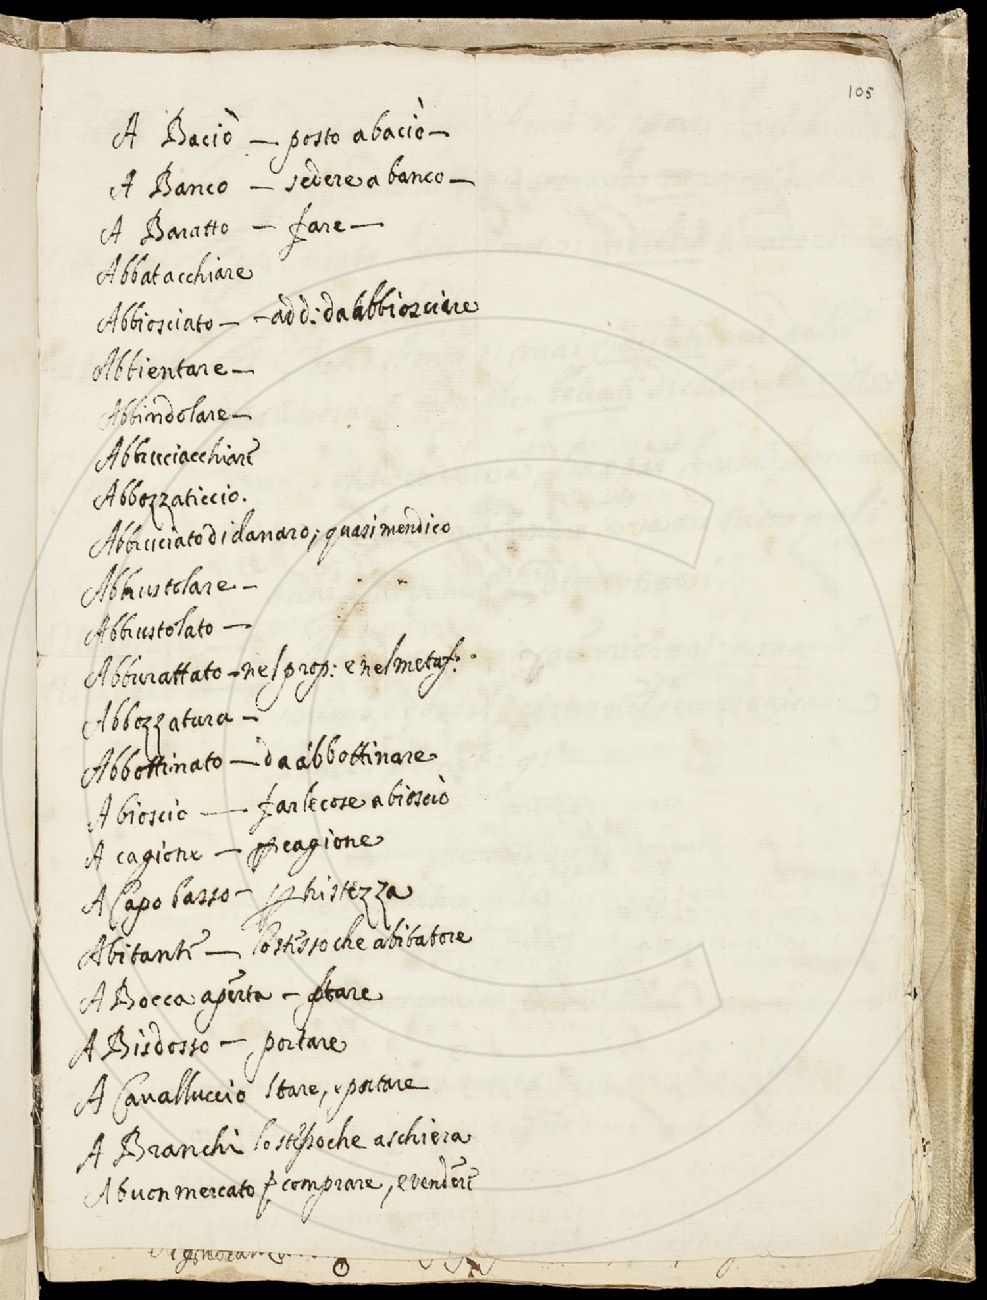 105
A Baciò — posto a baciò —
A Banco — sedere a banco —
A Baratto — fare —
Abbatacchiare
Abbiosciato — - add: da abbiosciare
Abbientare —
Abbindolare —
Abbruciacchiare
Abbozzaticcio.
Abbruciato di danaro; quasi mendico
Abbrustolare —
Abbrustolato —
Abburattato - nel prop: e nel metaf:
Abbozzatura —
Abbottinato — da abbottinare
A bioscio — far le cose a bioscio
A cagione — p cagione
A Capo basso — p tristezza
Abitante — lo stesso che abitatore
A Bocca aperta — stare
A Bisdosso — portare
A Cavalluccio stare, e portare
A Branchi lo stesso che a schiera
A buon mercato p comprare, e vendere